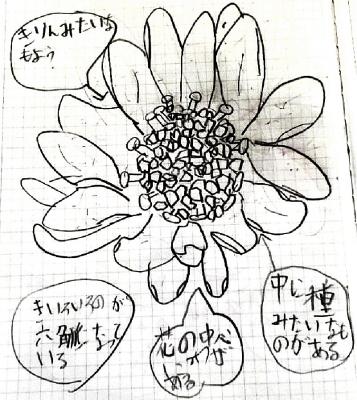 きりんみたいな
もよう
きいろいのが
六角に なって
いる
花の中へ
ある
中に種
みたいなも
のがある